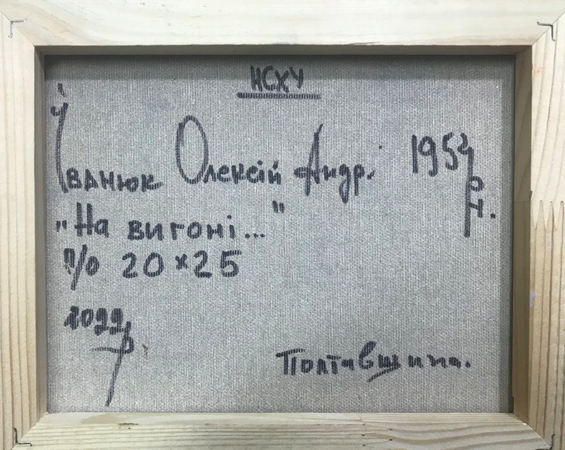 НСХУ
Іванюк Олексій Андр. 1954 р.н.
„На вигоні..."
п/о 20×25
2022р.
Полтавщина.